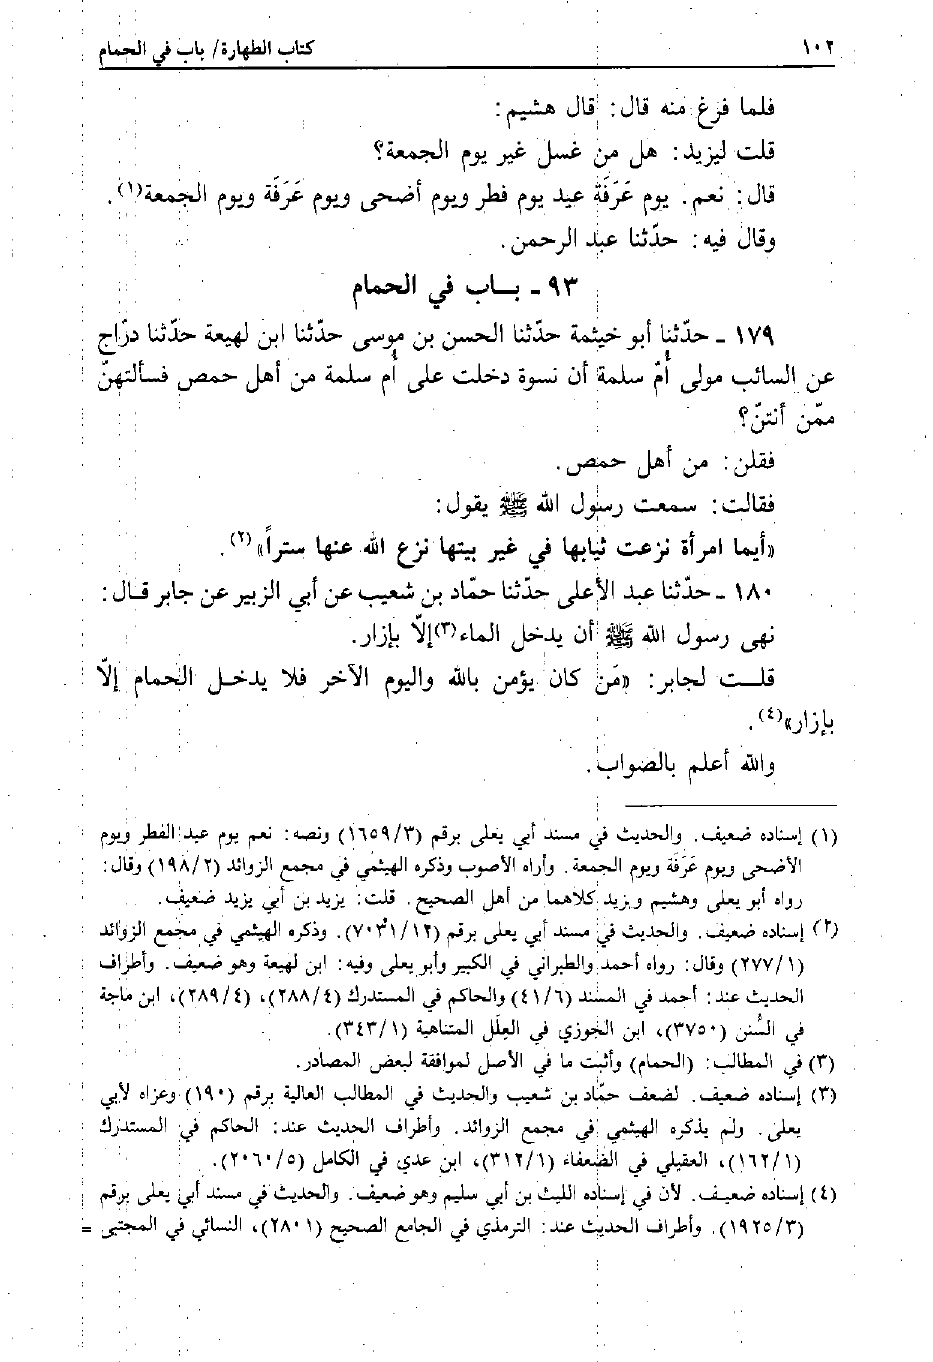 ١٠٢ كتاب الطهارة/ باب في الحمام
فلما فرغ منه قال: قال هشيم:
قلت ليزيد: هل من غسل غير يوم الجمعة؟
قال: نعم. يوم عَرَفَة عيد يوم فطر ويوم أضحى ويوم عَرَفَة ويوم الجمعة(١).
وقال فيه: حدّثنا عبد الرحمن.
٩٣ ـ بـاب في الحمام
١٧٩ ـ حدّثنا أبو خيثمة حدّثنا الحسن بن موسى حدّثنا ابن لهيعة حدّثنا درّاج
عن السائب مولى أُمّ سلمة أن نسوة دخلت على أُم سلمة من أهل حمص فسألتهنّ
ممّن أنتنّ؟
فقلن: من أهل حمص.
فقالت: سمعت رسول الله ﷺ يقول:
«أيما امرأة نزعت ثيابها في غير بيتها نزع الله عنها ستراً»(٢).
١٨٠ ـ حدّثنا عبد الأعلى حدّثنا حمّاد بن شعيب عن أبي الزبير عن جابر قـال:
نهى رسول الله ﷺ أن يدخل الماء(٣) إلّا بإزار.
قلـت لجابر: «مَن كان يؤمن بالله واليوم الآخر فلا يدخـل الحمام إلّا
بإزار»(٤).
والله أعلم بالصواب.
(١) إسناده ضعيف. والحديث في مسند أبي يعلى برقم (١٦٥٩/٣) ونصه: نعم يوم عيد الفطر ويوم
الأضحى ويوم عَرَفَة ويوم الجمعة. وأراه الأصوب وذكره الهيثمي في مجمع الزوائد (١٩٨/٢) وقال:
رواه أبو يعلى وهشيم ويزيد كلاهما من أهل الصحيح. قلت: يزيد بن أبي يزيد ضعيف.
(٢) إسناده ضعيف. والحديث في مسند أبي يعلى برقم (٧٠٣١/١٢). وذكره الهيثمي في مجمع الزوائد
(٢٧٧/١) وقال: رواه أحمد والطبراني في الكبير وأبو يعلى وفيه: ابن لهيعة وهو ضعيف. وأطراف
الحديث عند: أحمد في المسند (٤١/٦) والحاكم في المستدرك (٢٨٨/٤)، (٢٨٩/٤)، ابن ماجة
في السُّنن (٣٧٥٠)، ابن الجوزي في العِلَل المتناهية (٣٤٣/١).
(٣) في المطالب: (الحمام) وأثبت ما في الأصل لموافقة لبعض المصادر.
(٣) إسناده ضعيف. لضعف حمّاد بن شعيب والحديث في المطالب العالية برقم (١٩٠) وعزاه لأبي
يعلى. ولم يذكره الهيثمي في مجمع الزوائد. وأطراف الحديث عند: الحاكم في المستدرك
(١٦٢/١)، العقيلي في الضعفاء (٣١٢/١)، ابن عدي في الكامل (٢٠٦٠/٥).
(٤) إسناده ضعيـف. لأن في إسناده الليث بن أبي سليم وهو ضعيف. والحديث في مسند أبي يعلى برقم
(١٩٢٥/٣). وأطراف الحديث عند: الترمذي في الجامع الصحيح (٢٨٠١)، النسائي في المجتبى =